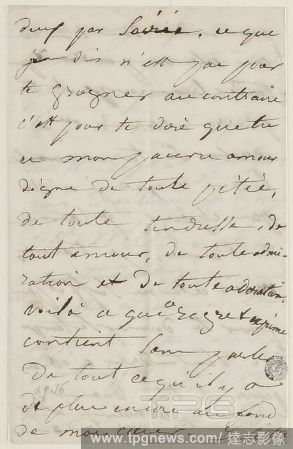 deux par soirée. ce que
j'en dis n'est pas pour
te grogner au contraire
c'est pour te dire que tu
es mon pauvre amour
digne de toute pitié,
de toute tendresse, de
tout amour, de toute admi-
ration et de toute adoration.
Voilà ce que ce regret exprime
contient sans parler
De tout ce qu'il y a
de plus encore au fond
de mon cœur
TPG
www.tpgnews.com
達志影像